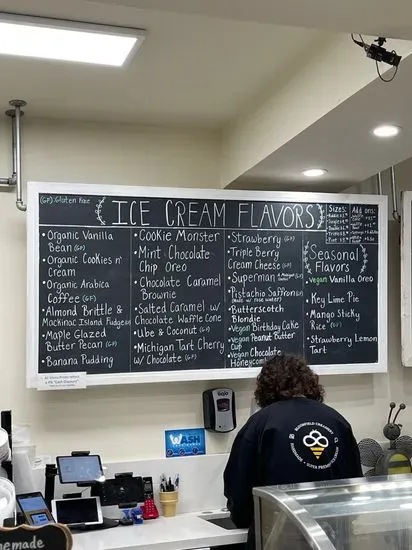 (GF): Gluten Free
ICE CREAM FLAVORS
• Organic Vanilla
Bean (GF)
• Organic Cookies n'
Cream
• Organic Arabica
Coffee (GF)
• Almond Brittle &
Mackinac Island Fudge (GF)
• Maple Glazed
Butter Pecan (GF)
• Banana Pudding
• Cookie Monster
• Mint Chocolate
Chip Oreo
• Chocolate Caramel
Brownie
• Salted Caramel w/
Chocolate Waffle Cone
• Ube & Coconut (GF)
• Michigan Tart Cherry
w/ Chocolate (GF)
• Strawberry (GF)
• Triple Berry
Cream Cheese (GF)
• Superman
• Pistachio Saffron (GF)
(made w/ rose water)
• Butterscotch
Blondie
• Vegan Birthday Cake
• Vegan Peanut Butter
Cup
• Vegan Chocolate
Honeycomb
Sizes:
Add ons:
Seasonal
Flavors
Vegan Vanilla Oreo
• Key Lime Pie
• Mango Sticky
Rice (GF)
• Strawberry Lemon
Tart
WASH